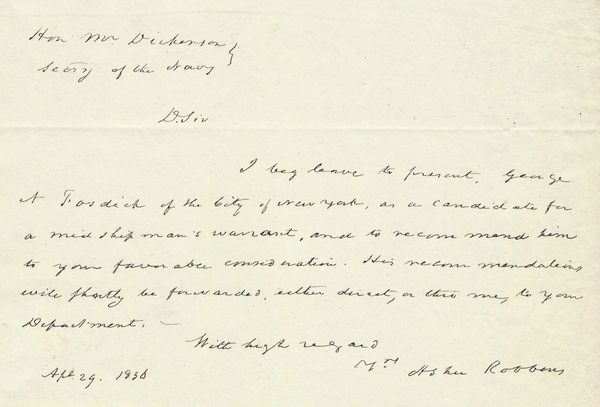 Hon Mr Dickerson }
Secty of the Navy
D. Sir
I beg leave to present, George
A Fosdick of the City of New York, as a candidate for
a midshipman's warrant, and to recommend him
to your favorable consideration. His recommendations
will shortly be forwarded, either direct, or thro me, to your
Department. —
With high regard
Yrs Asher Robbins
Apl. 29. 1836